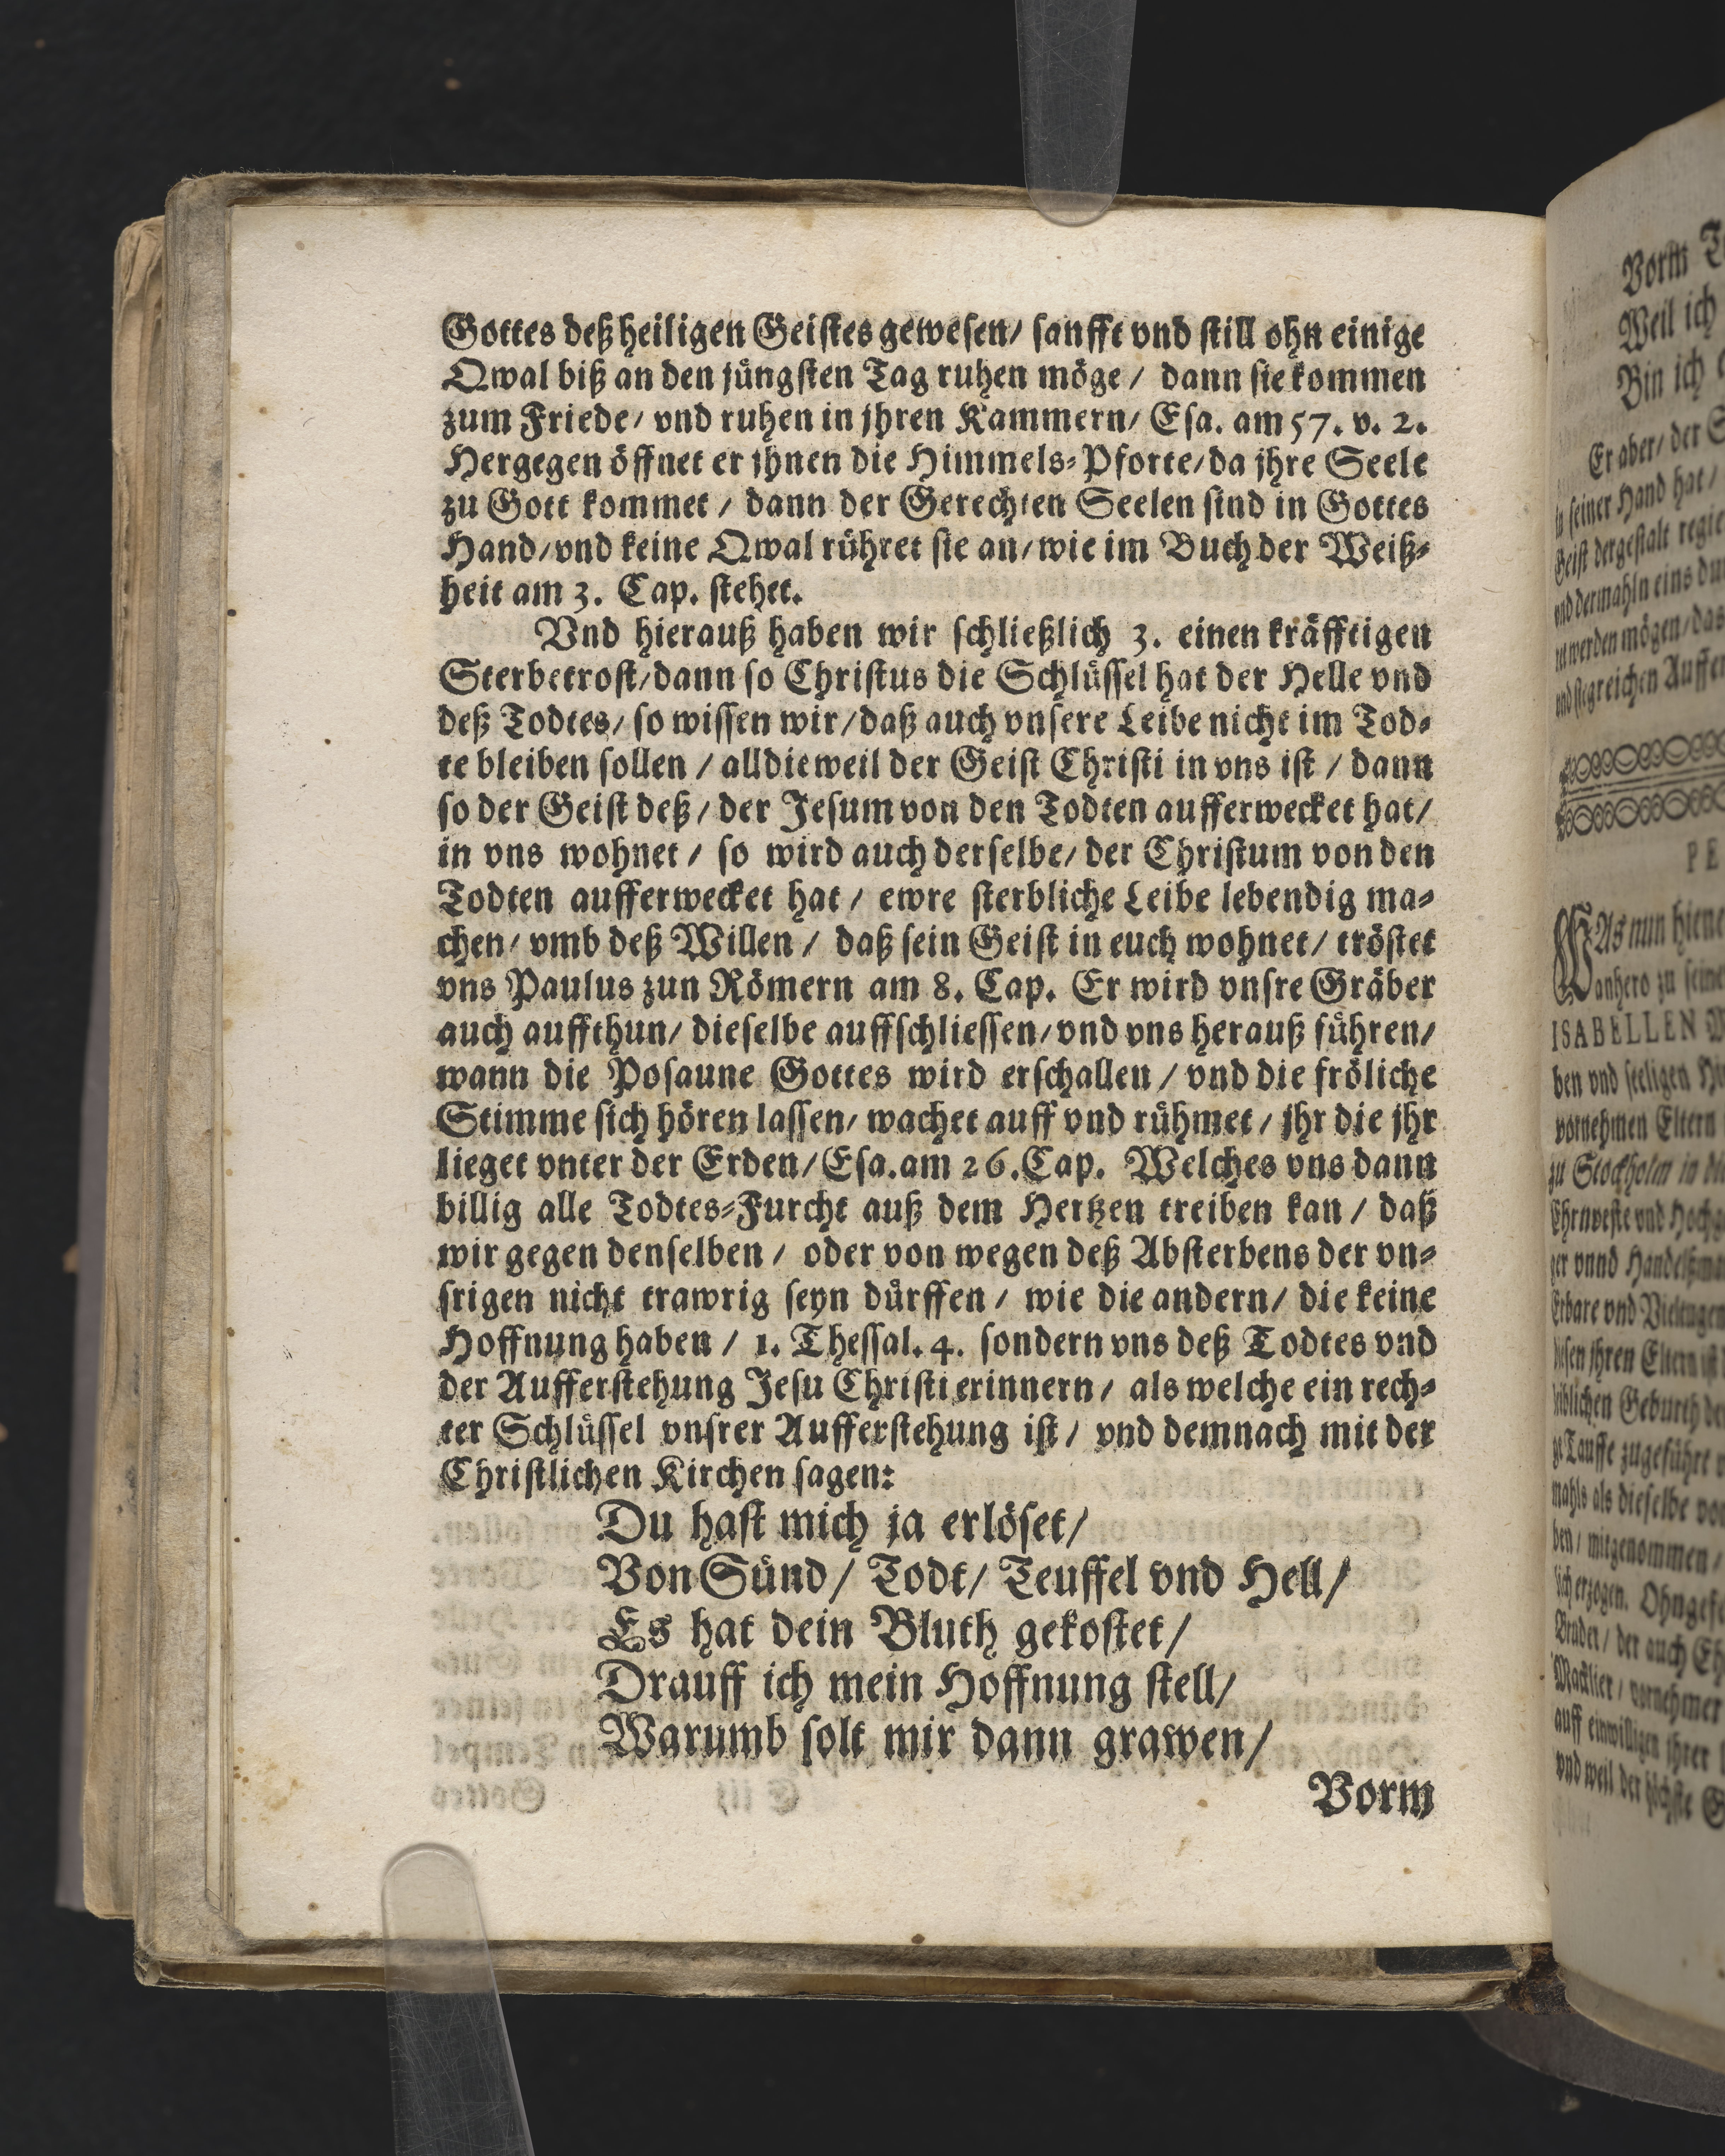 Gottes deß heiligen Geistes gewesen/ sanfft vnd still ohn einige
Qwal biß an den jüngsten Tag ruhen möge/ dann sie kommen
zum Friede/ vnd ruhen in jhren Kammern/ Esa. am 57. v. 2.
Hergegen öffnet er jhnen die Himmels-Pforte/da jhre Seele
zu Gott kommet/ dann der Gerechten Seelen sind in Gottes
Hand/vnd keine Qwal rühret sie an/wie im Buch der Weiß-
heit am 3. Cap. stehet.
Vnd hierauß haben wir schließlich 3. einen kräfftigen
Sterbetrost/dann so Christus die Schlüssel hat der Helle vnd
deß Todtes/ so wissen wir/daß auch vnsere Leibe nicht im Tod-
te bleiben sollen/ alldieweil der Geist Christi in vns ist/ dann
so der Geist deß/ der Jesum von den Todten aufferwecket hat/
in vns wohnet/ so wird auch derselbe/ der Christum von den
Todten aufferwecket hat/ ewre sterbliche Leibe lebendig ma-
chen/ vmb deß Willen/ daß sein Geist in euch wohnet/ tröstet
vns Paulus zun Römern am 8. Cap. Er wird vnsre Gräber
auch auffthun/ dieselbe auffschliessen/vnd vns herauß führen/
wann die Posaune Gottes wird erschallen/ vnd die fröliche
Stimme sich hören lassen/ wachet auff vnd rühmet/ jhr die jhr
lieget vnter der Erden/Esa.am 26.Cap. Welches vns dann
billig alle Todtes-Furcht auß dem Hertzen treiben kan/ daß
wir gegen denselben/ oder von wegen deß Absterbens der vn-
srigen nicht trawrig seyn dürffen/ wie die andern/ die keine
Hoffnung haben/ 1. Thessal. 4. sondern vns deß Todtes vnd
der Aufferstehung Jesu Christi erinnern/ als welche ein rech-
ter Schlüssel vnsrer Aufferstehung ist/ vnd demnach mit der
Christlichen Kirchen sagen:
Du hast mich ja erlöset/
Von Sünd/ Todt/ Teuffel vnd Hell/
Es hat dein Bluth gekostet/
Drauff ich mein Hoffnung stell/
Warumb solt mir dann grawen/
Vorm
Vorm
Weil ich
Bin ich
Er aber/ der
seiner Hand hat/
Geist dergestalt
vnd dermahln eins
werden mögen/
PE
WAs nun
anhero zu seine
ISABELLEN
ben vnd seeligen
vornehmen Eltern
zu Stockholm in
Ehrnveste vnd
vnnd
Erbare vnd
jhren
Geburth
Tauffe zugeführt
mahls als dieselbe
ben/ mitgenommen/
erzogen.
Bruder/ der auch
vornehmer
auff einwilligen jhrer
vnd weil der höchste